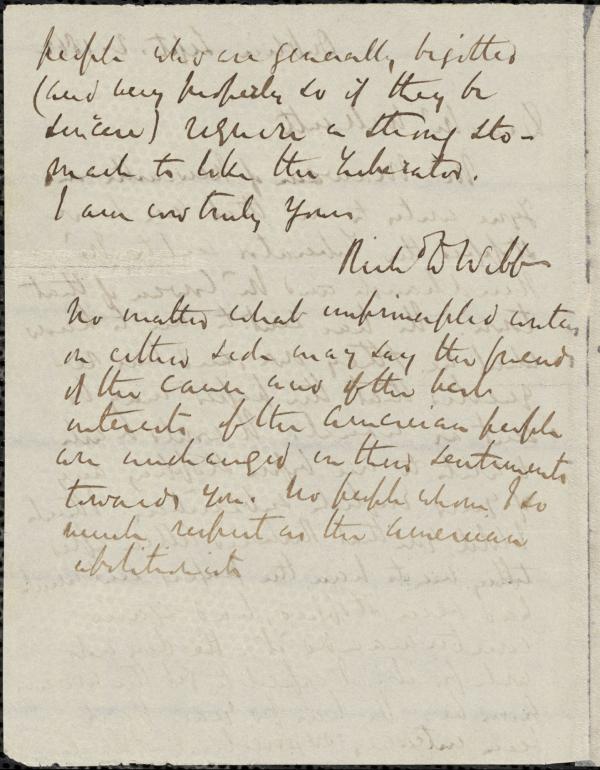 people who are generally bigotted
(and very properly so if they be
sincere) require a strong sto-
mach to like the Liberator.
I am ever truly yours
Richd D Webb
No matter what unprincipled writers
on either side may say the friends
of the cause and of the best
interests of the American people
are unchanged in their sentiments
towards you. No people whom I so
much respect as the American
abolitionists